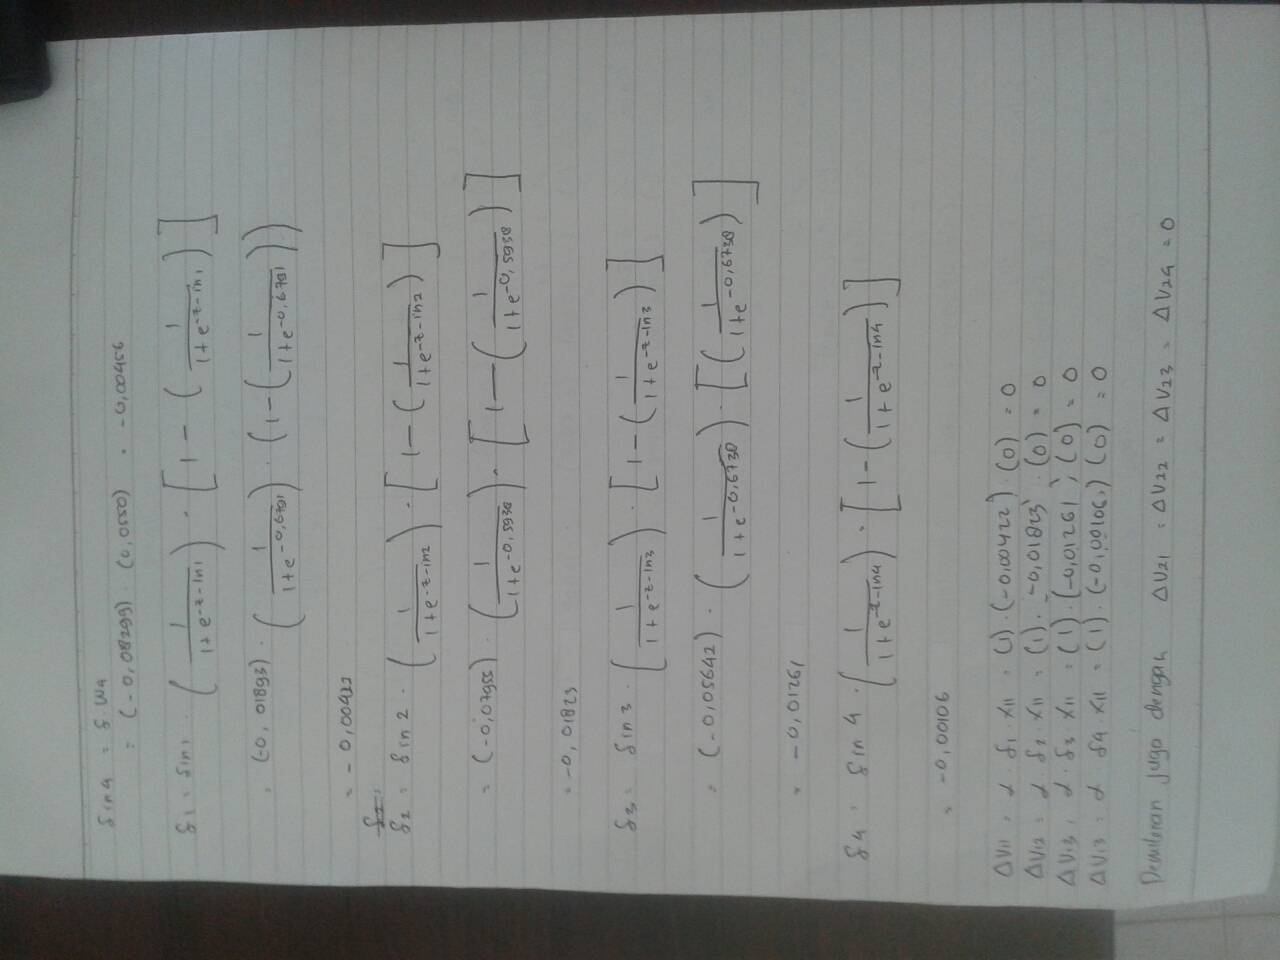 δin4 = δ. W4
= (-0,08299) (0,0550) = -0,00456
δ1 = δin1 . (1/(1+e^-z-in1)) . [1 - (1/(1+e^-z-in1))]
= (-0,01893) . (1/(1+e^-0,6791)) . (1-(1/(1+e^-0,6791)))
= -0,00422
δ2 = δin2 . (1/(1+e^-z-in2)) . [1-(1/(1+e^-z-in2))]
= (-0,07955) . (1/(1+e^-0,5938)) . [1-(1/(1+e^-0,5938))]
= -0,01823
δ3 = δin3 . (1/(1+e^-z-in3)) . [1-(1/(1+e^-z-in3))]
= (-0,05642) . (1/(1+e^-0,6738)) . [(1/(1+e^-0,6738))]
= -0,01261
δ4 = δin4 . (1/(1+e^-z-in4)) . [1-(1/(1+e^-z-in4))]
= -0,00106
ΔV11 = α δ1 x11 = (1).(-0,00422).(0) = 0
ΔV12 = α. δ2 x11 = (1). -0,01823 .(0) = 0
ΔV13 = α. δ3. x11 = (1).(-0,01261).(0) = 0
ΔV13 = α δ4. x11 = (1).(-0,00106.)(0) = 0
Demikian juga dengan ΔV21 = ΔV22 = ΔV23 = ΔV24 = 0